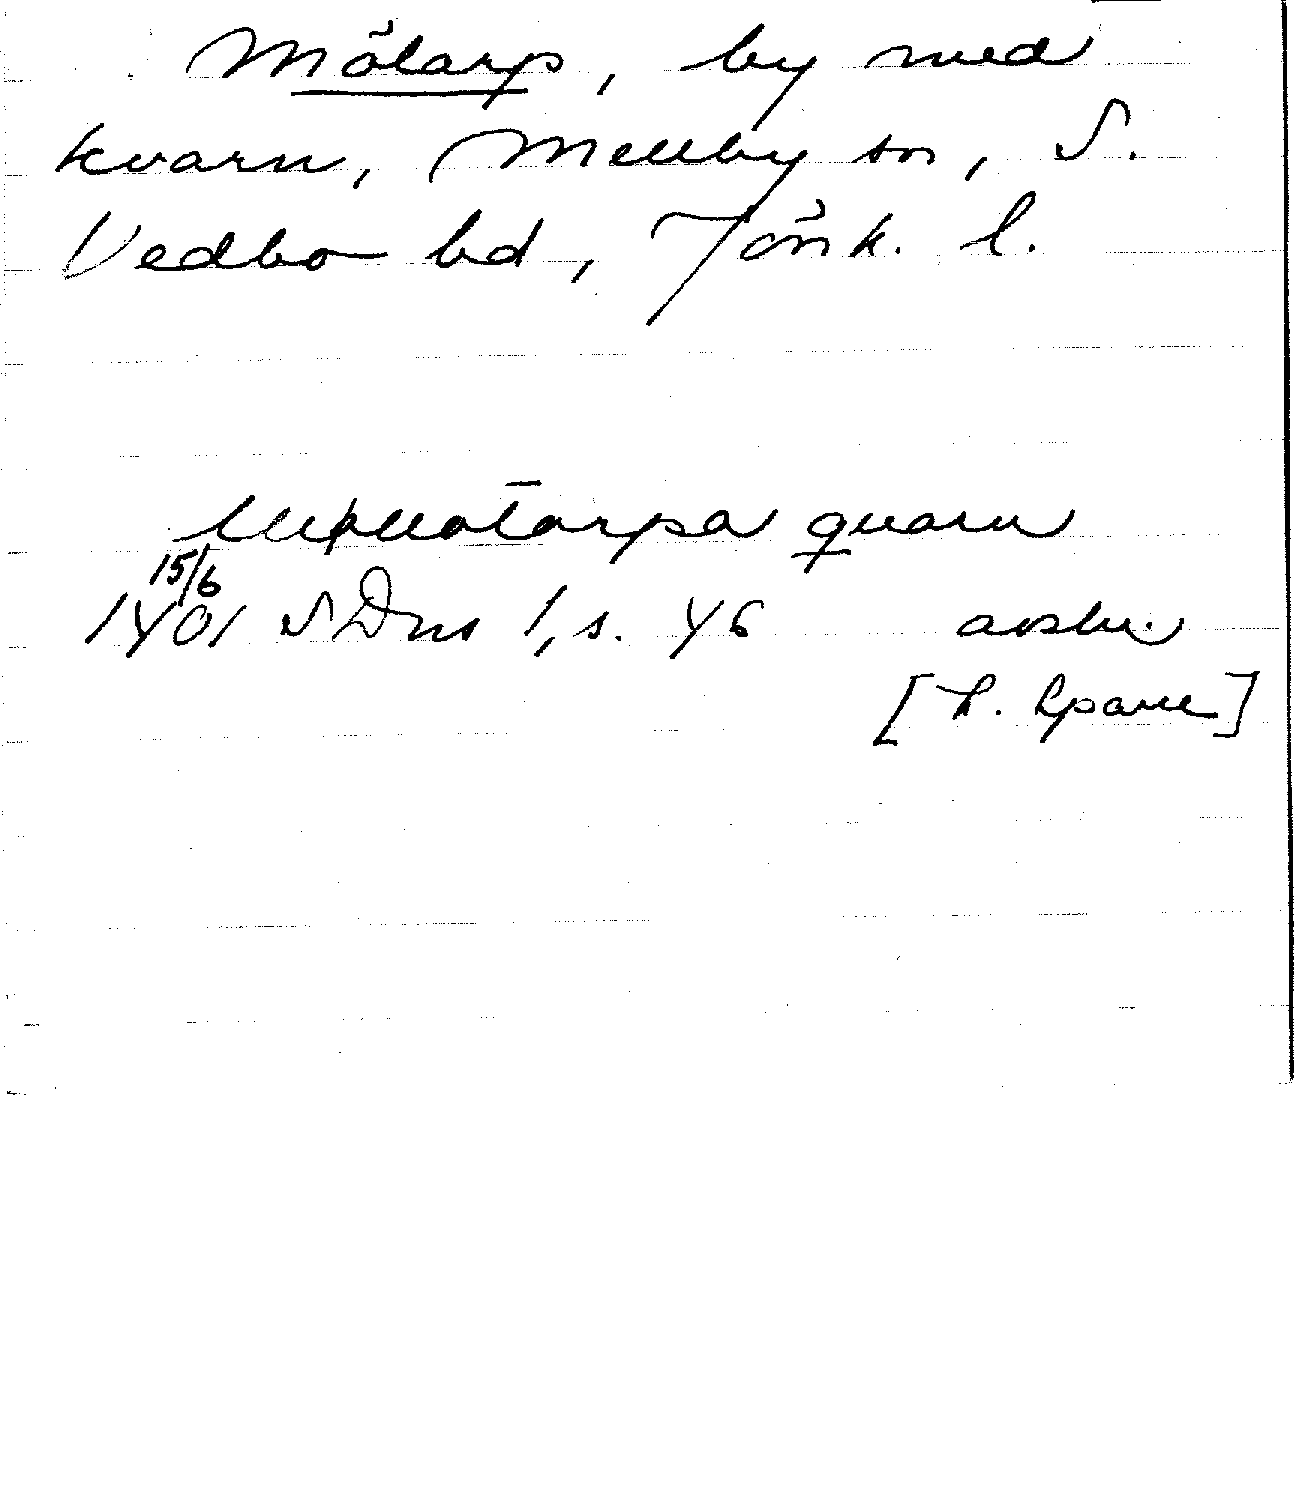 Mölarp, by med
kvarn, Mellby sn, S.
Vedbo hd, Jönk. l.
quarn
15/6
1401 SDns 1, s. 46 avskr.